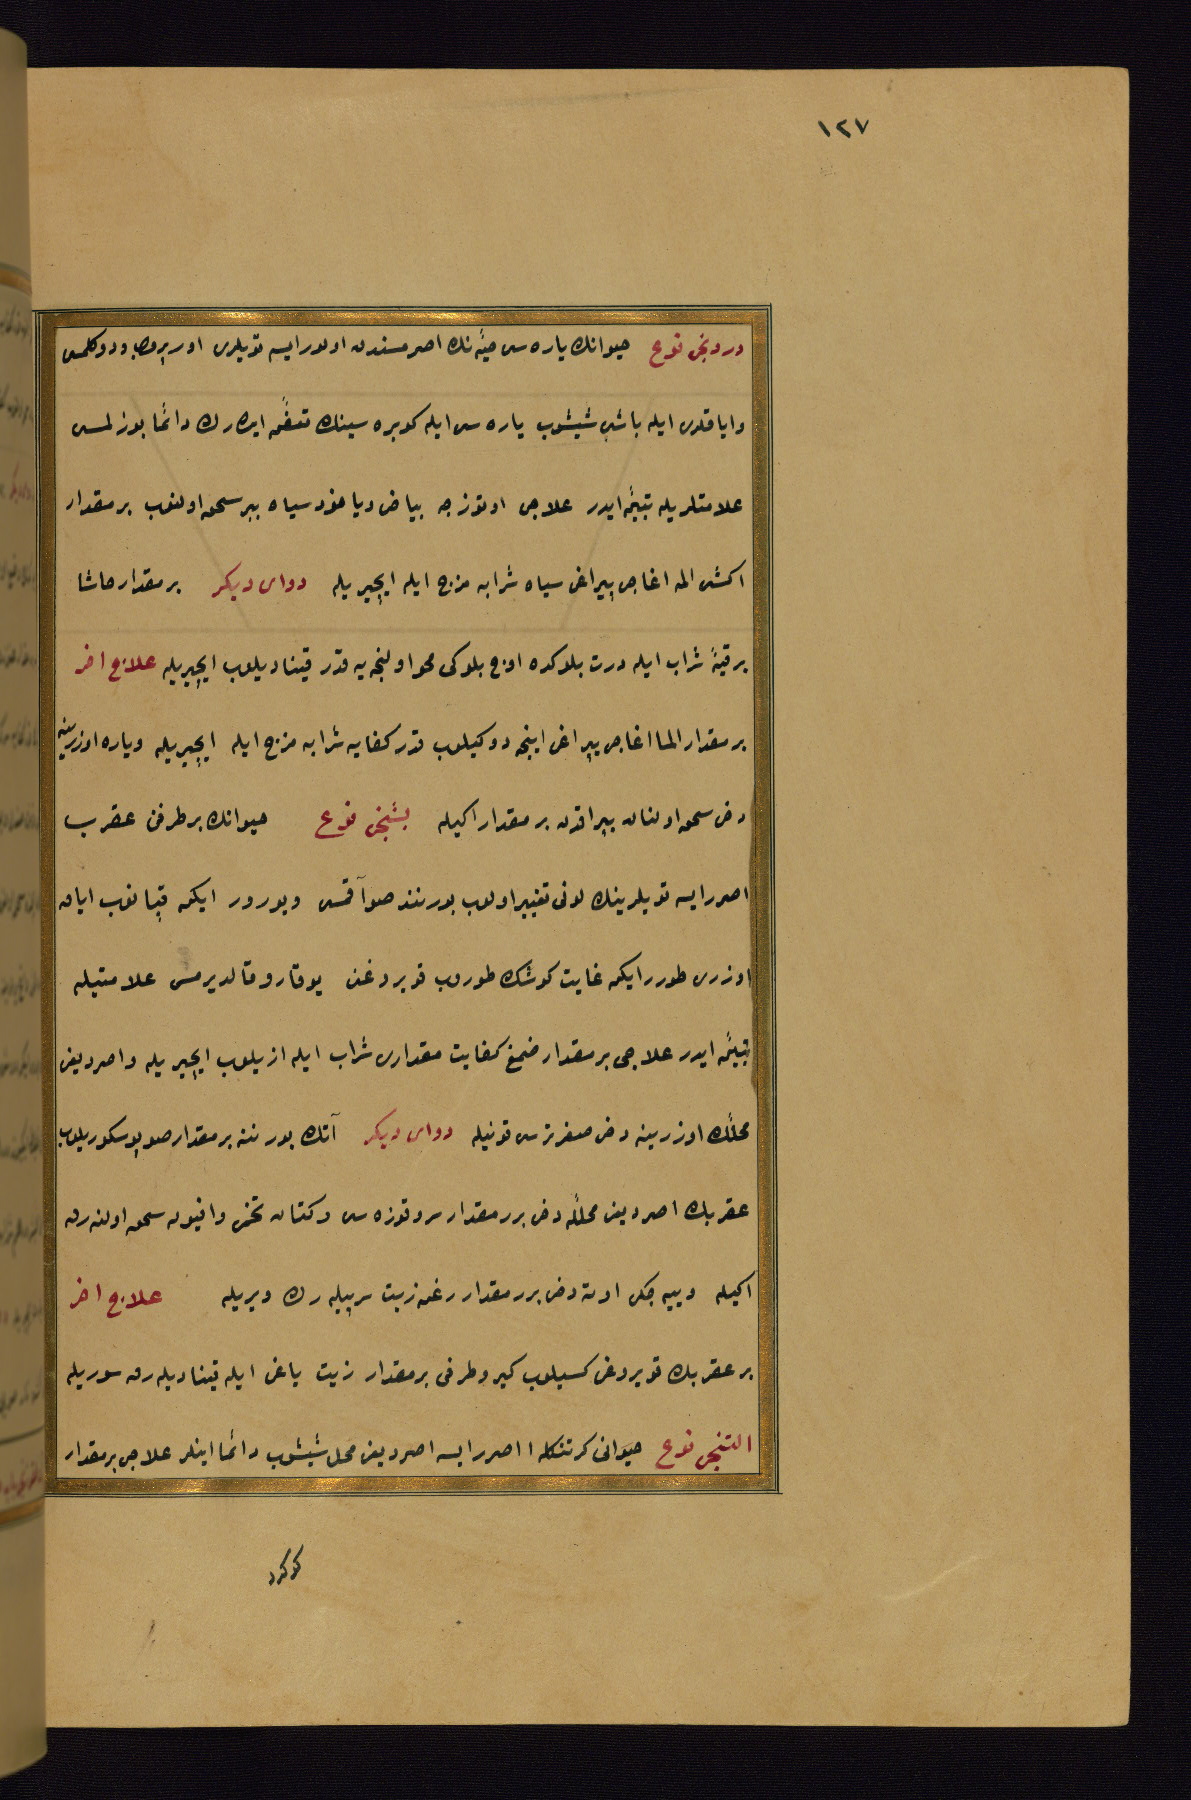 ١٢٧
دردنجی نوع حیوانك یاره سی حیّه نك اصرمسندن اولور ایسه تویلری اورپروب و دوكلمسی
و ایاقلری ایله باشی شیشوب یاره سی ایله كوبره سینك تعفّنه ایدرك دائما بوزلمسی
علامتلریله تبیّنه ایدر علاجی اوتوزجه بیاض و یاخود سیاه ببر سحق اولنوب بر مقدار
اكشی المه اغاجی یپراغی سیاه شرابه مزج ایله ایچیریله دوای دیكر بر مقدار حاشا
بر قیّه شراب ایله درت بلوكده اوچ بلوكی محو اولنجه یه قدر قیناديلوب ایچیریله علاج اخر
بر مقدار الما اغاجی یپراغی اینجه دوكیلوب قدر كفایه شرابه مزج ایله ایچیریله و یاره اوزرینه
دخی سحق اولنان یپراقدن بر مقدار اكیله بشنجی نوع حیوانك بر طرفنی عقرب
اصرر ایسه تویلرینك لونی تغییر اولوب بورنندن صو آقمسی و یورور ایكن قپانوب ایاق
اوزری طورر ایكن غایت كوشك طوروب قویروغنی یوقارو قالدیرمسی علامتیله
تبیّنه ایدر علاجی بر مقدار ضمغ كفایت مقداری شراب ایله ازیلوب ایچیریله و اصردیغی
محلّك اوزرینه دخی صغر ترسی قونیله دوای دیكر آتك بورننه بر مقدار صو پوسكوریلوب
عقربك اصردیغی محلّه دخی برر مقدار سرو قوزه سی و كتان تخمی و افیون سحق اولنه رق
اكیله و ییه جكی اوته دخی برر مقدار رغن زیت سرپیله رك ویریله علاج اخر
بر عقربك قویروغی كسیلوب كیرو طرفی بر مقدار زیت یاغی ایله قینادیله رق سوریله
التنجی نوع حیوانی كرتنكله اصرر ایسه اصردیغی محل شیشوب دائما اینلر علاجی بر مقدار
كوكرد